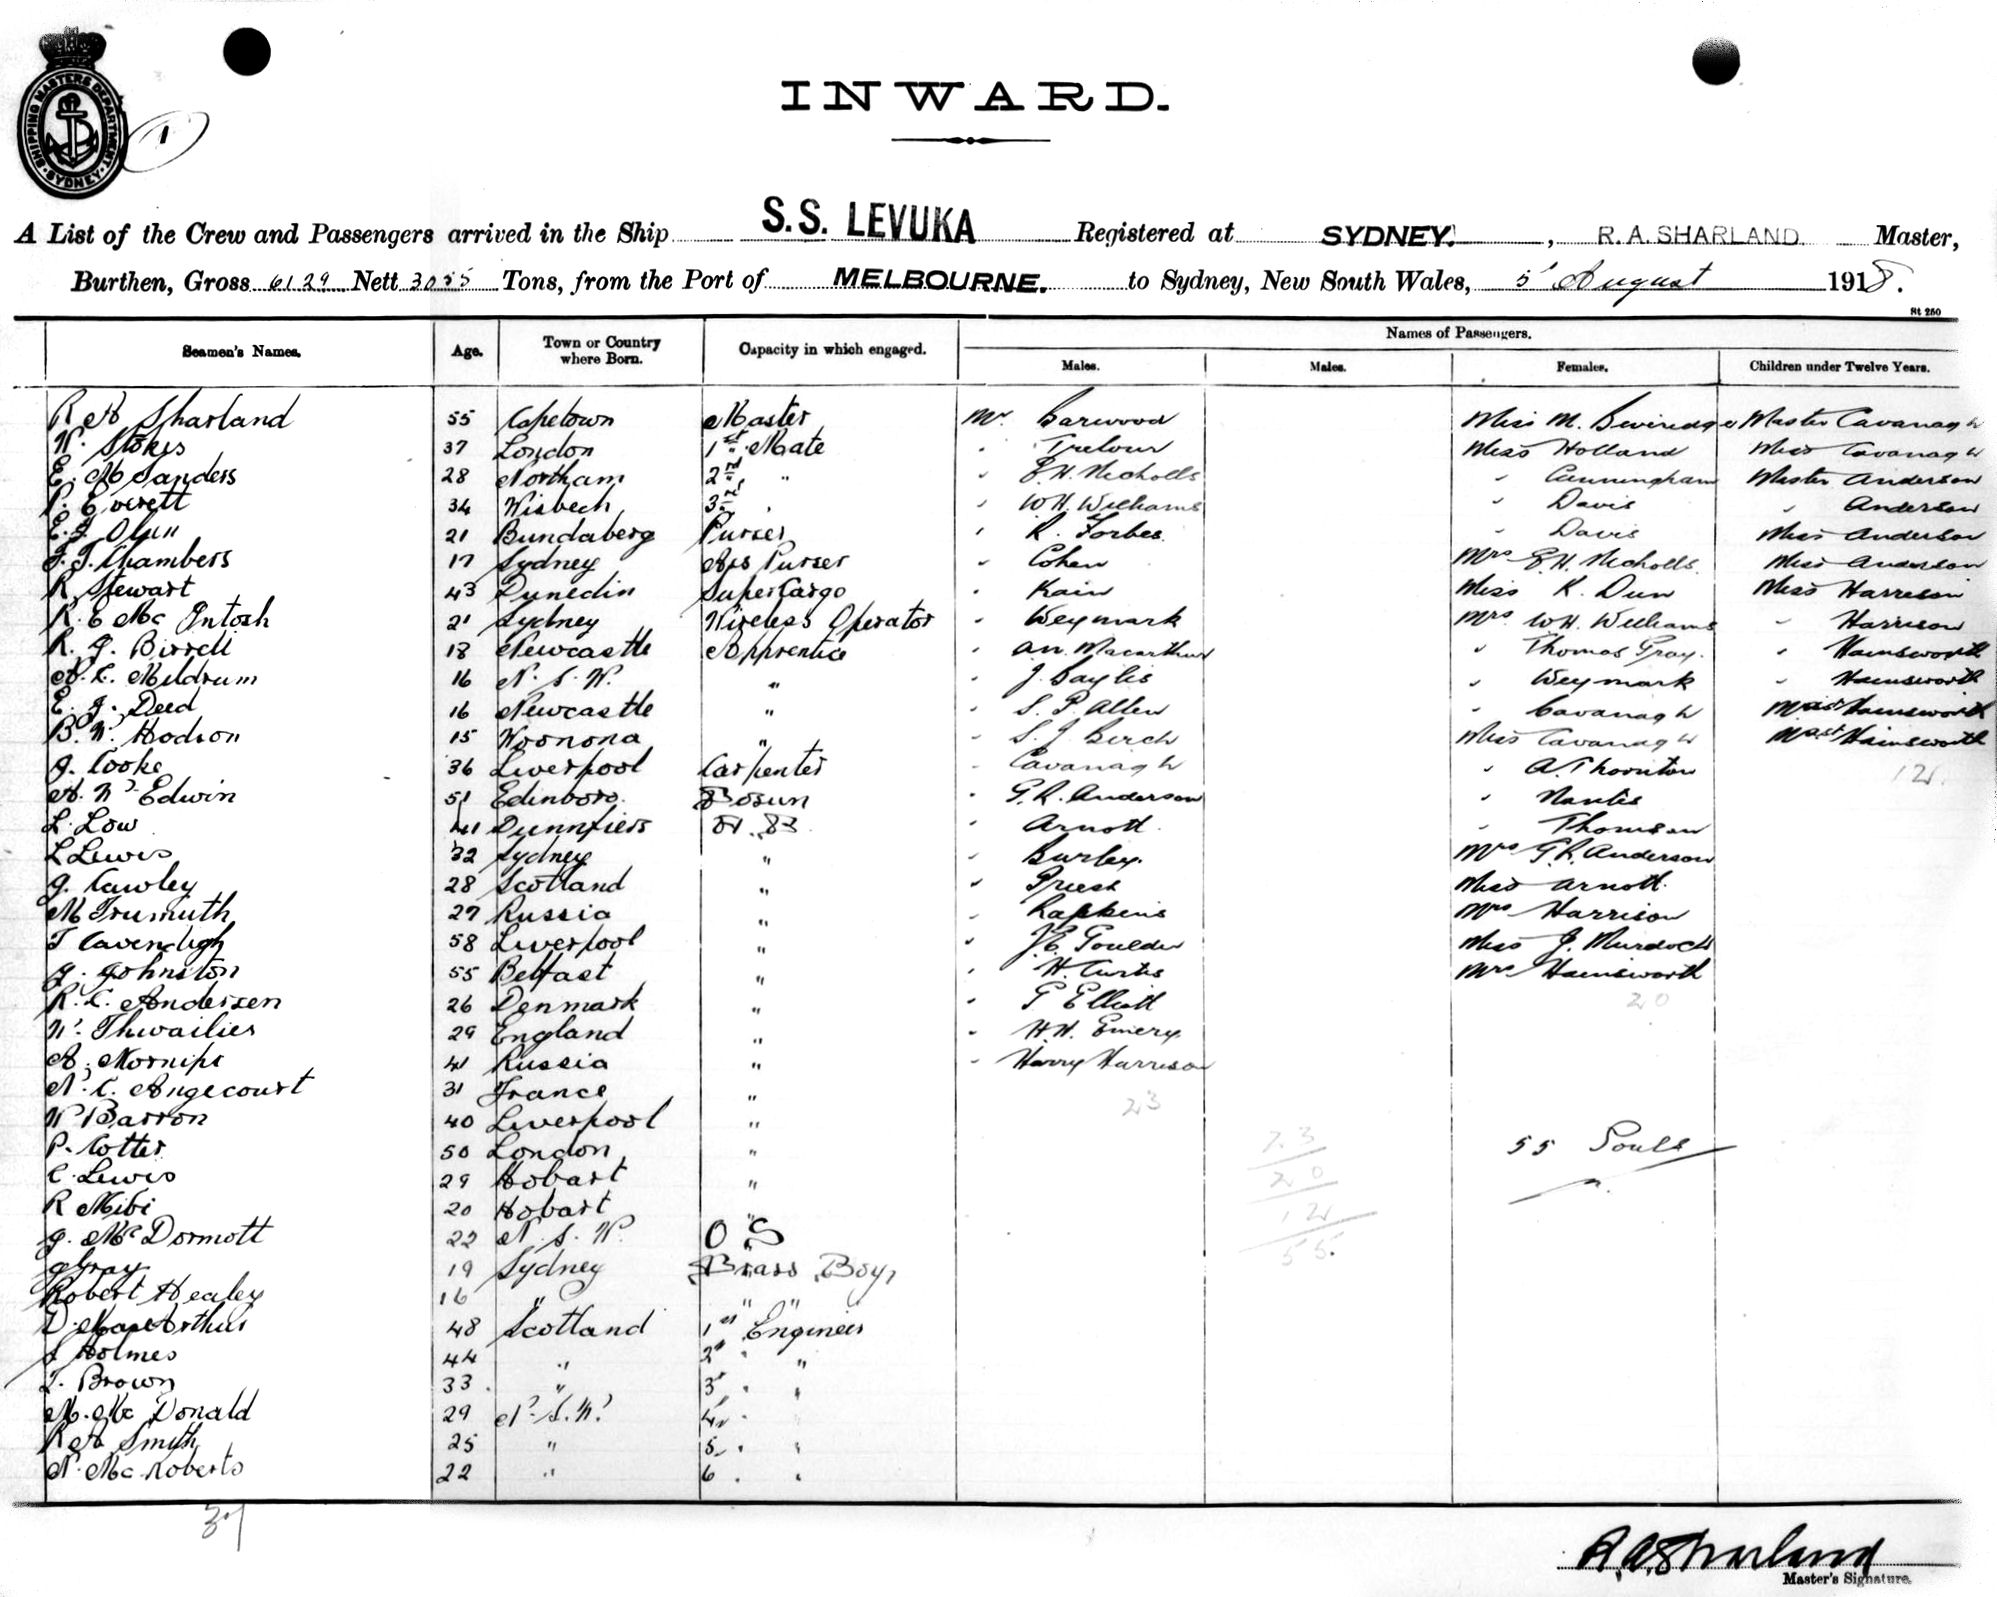 SHIPPING MASTERS DEPARTMENT
SYDNEY
1
INWARD.
A List of the Crew and Passengers arrived in the Ship S.S. LEVUKA Registered at SYDNEY. , R.A. SHARLAND Master,
Burthen, Gross 6129 Nett 3055 Tons, from the Port of MELBOURNE. to Sydney, New South Wales, 5 August 1918.
St 250
Names of Passengers.
Seamen's Names. Age. Town or Country where Born. Capacity in which engaged. Males. Males. Females. Children under Twelve Years.
R A Sharland 55 Capetown Master Mr Barwood Miss M. Master Cavanagh
W. Stokes 37 London 1st Mate " Miss Holland Miss Cavanagh
E. M Sanders 28 Northam 2nd " " E.H. Nicholls " Cunningham Master Anderson
P. Everett 34 Wisbech 3rd " " W.H. Williams " Davis " Anderson
E. J. 21 Bundaberg Purser " R. Forbes " Davis Miss Anderson
J. T. Chambers 17 Sydney Ass Purser " Cohen Mrs E.H. Nicholls. Miss Anderson
R Stewart 43 Dunedin Supercargo " Kain Miss K. Dun Miss Harrison
R. E Mc Intosh 21 Sydney Wireless Operator " Weymark Mrs W.H. Williams " Harrison
R. J. Birrell 18 Newcastle Apprentice " Macarthur " Thomas Gray. " Hainsworth
A. L. Meldrum 16 N. S. W. " " J. Baylis " Weymark " Hainsworth
E. J. Deed 16 Newcastle " " S. P. Allen " Cavanagh Mast Hainsworth
B. W. Hodson 15 Woonona " " S. J. Birch Miss Cavanagh Mast Hainsworth
J. Cooke 36 Liverpool Carpenter " Cavanagh " A. Thornton 12.
A. Mc Edwin 51 Edinboro. Bosun " G. R. Anderson "
L. Low 41 A. B. " Arnott. " Thomson
L Lewis 32 Sydney " " Burley. Mrs G.R. Anderson
J. Cawley 28 Scotland " " Priest Miss Arnott.
M 27 Russia " " Hapkins Mrs Harrison
T Cavendigh 58 Liverpool " " J.E. Goulder Miss J. Murdoch
J. Johnston 55 Belfast " " H. Curtis Mrs Hainsworth
R. C. Andersen 26 Denmark " " G Elliott 20
W. 29 England " " H.H. Emery.
A. 41 Russia " " Harry Harrison
N. C. Angecourt 31 France " 23
W Barron 40 Liverpool "
P. Cotter 50 London " 23 55 Souls
C. Lewis 29 Hobart " 20
R Mibi 20 Hobart " 12
J. Mc Dormott 22 N. S. W. O S 55.
J Gray 19 Sydney Brass Boy,
Robert Healey 16 " " "
D. MacArthur 48 Scotland 1st Engineer
J Holmes 44 " 2 " "
T. Brown 33 " 3 " "
A. Mc Donald 29 N. S. W. 4 "
R A Smith 25 " 5 " "
N. Mc Roberts 22 " 6 " "
37
R. A. Sharland
Master's Signature.